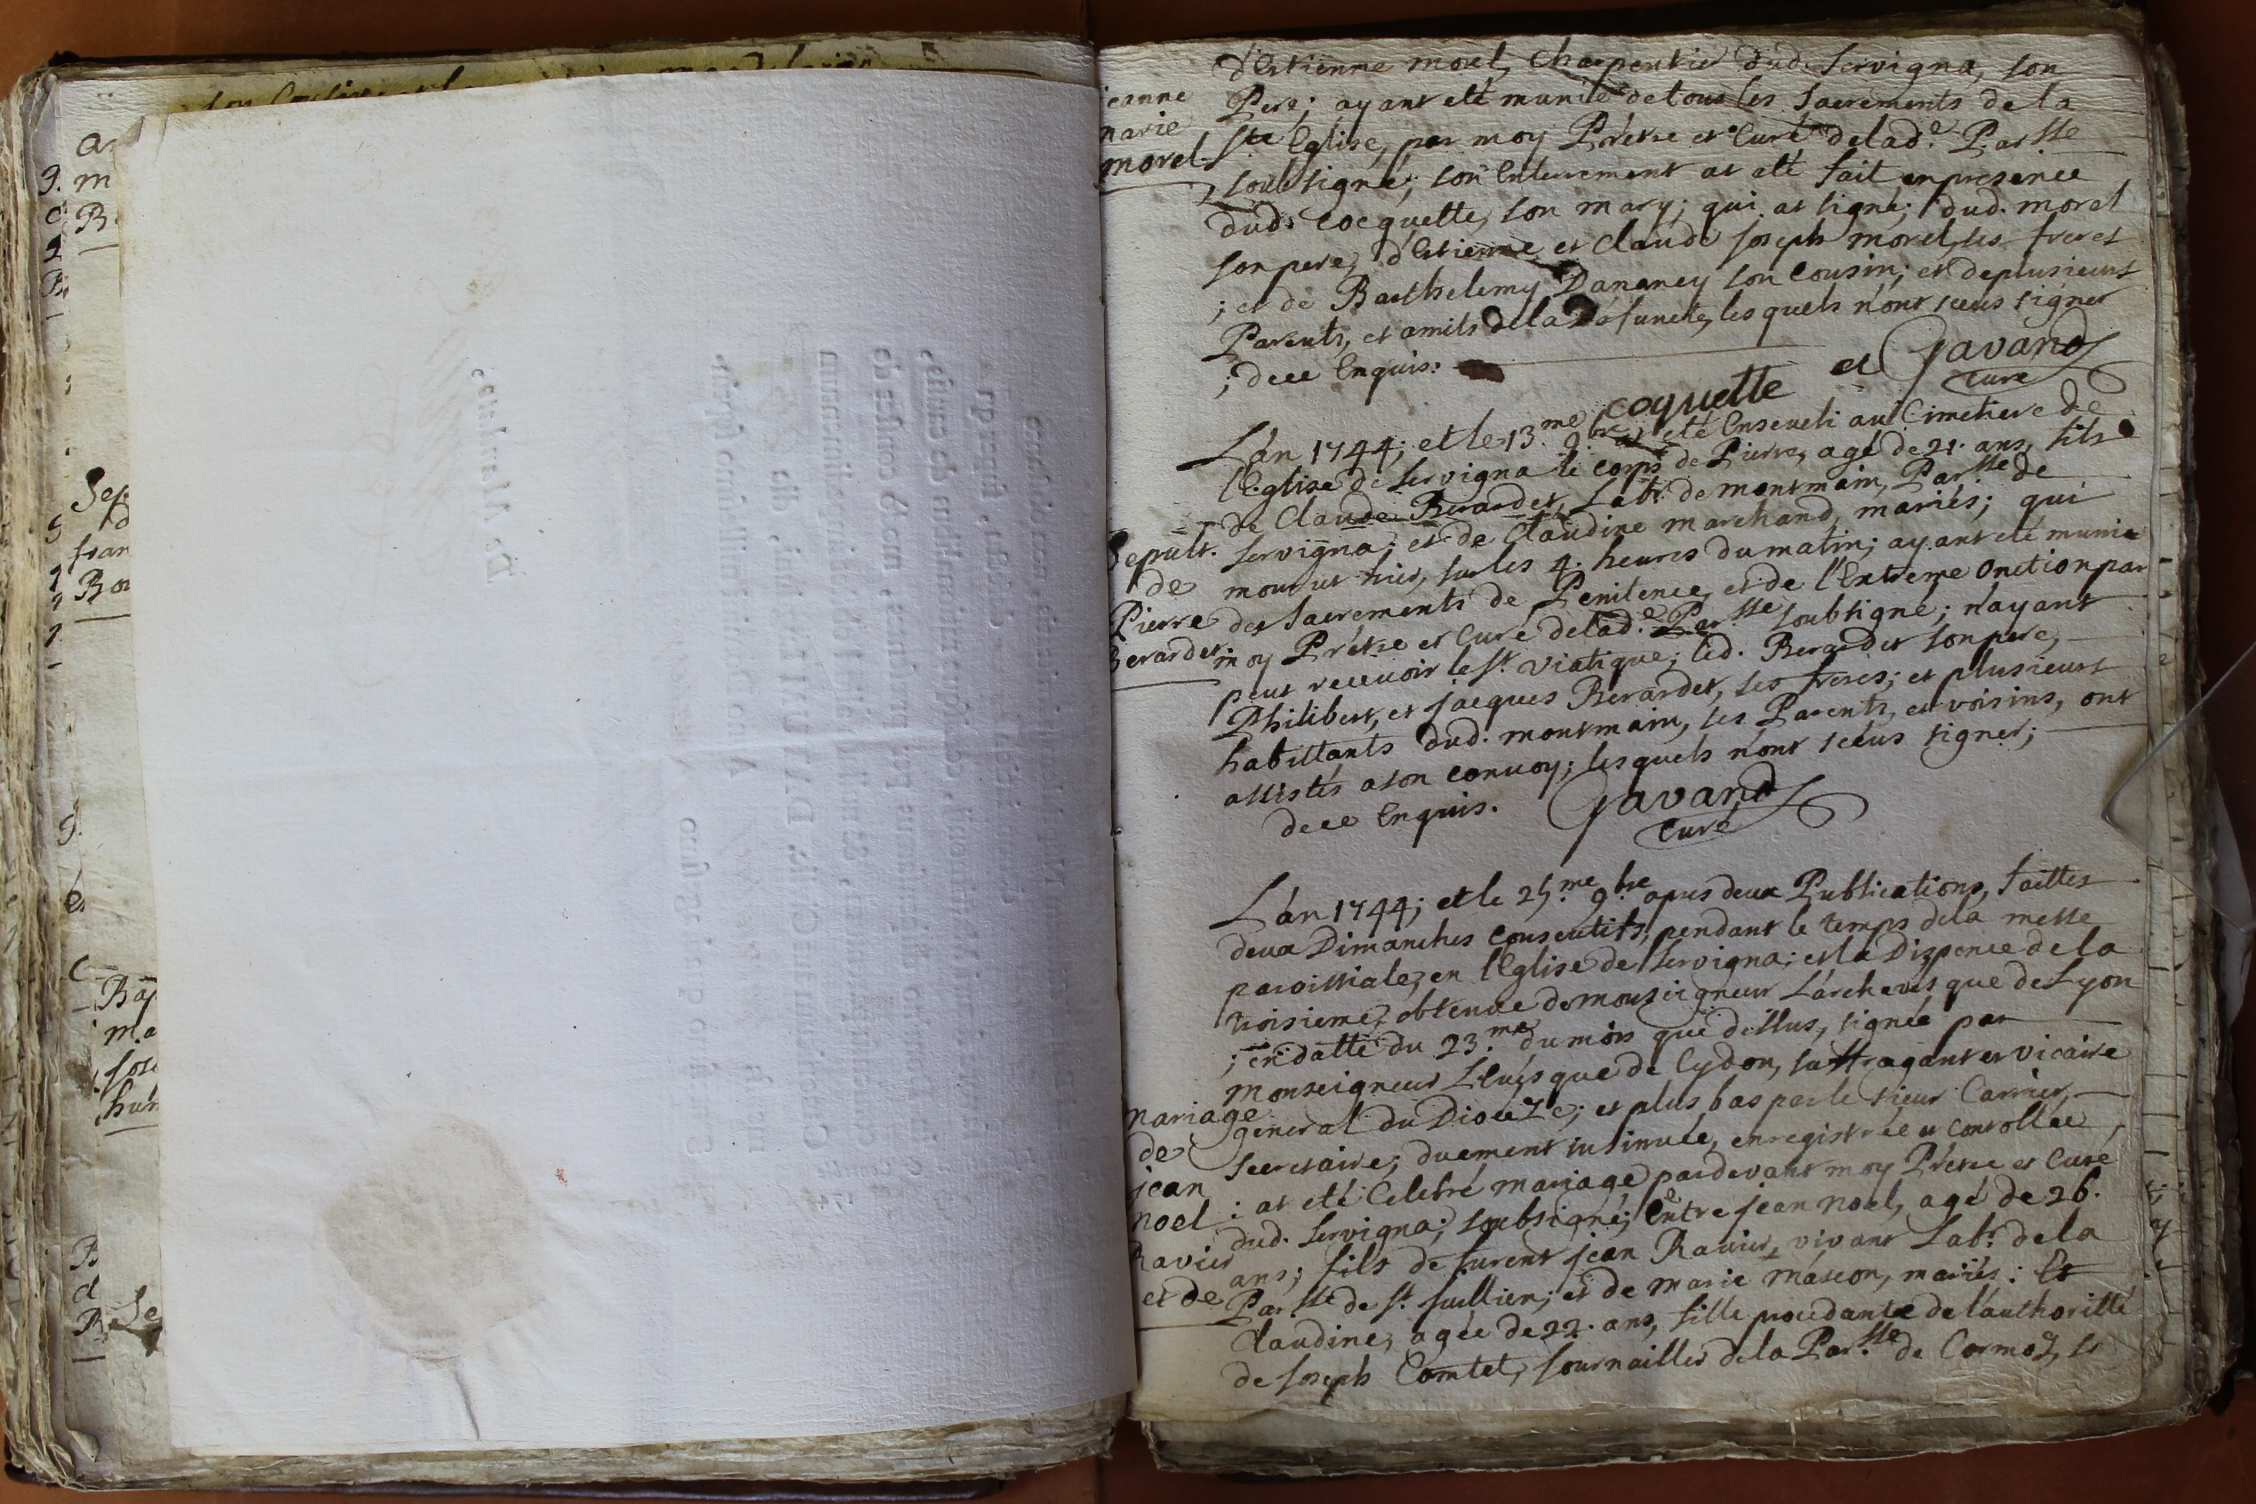 d'Estienne morel, Charpentier dud. Servigna, son
Pere; ayant eté munie de tous les Sacrements de la
Ste Eglise, par moy Prêtre et Curé de lad.e Par.sse
soubsigné; son Enterrement at eté fait en presence
dud. Cocquette, son mary; qui at signé; dud. morel
son pere, d'Estienne et Claude Joseph morel, ses freres
; et de Barthelemy Dananey son Cousin; et de plusieurs
Parents, et amits de la Défuncte, lesquels n'ont sceus signer
; de ce Enquis.
coquette et Gavand
Curé
jeanne
marie
morel
L'an 1744; et le 13.me 9.bre at eté Enseveli au Cimetiere de
l'Eglise de Servigna le corps de Pierre, agé de 21. ans, fils
de Claude Berardet, Lab.r de montmain, Par.sse de
Servigna; et de Claudine marchand, mariés; qui
mourut hier, sur les 4. heures du matin; ayant eté munie
des Sacrements de Penitence, et de l'Extreme Onction par
moy Prêtre et Curé de lad.e Par.sse soubsigné; n'ayant
peut recevoir le St. Viatique; led. Berardet son pere,
Philibert, et jacques Berardet, ses freres; et plusieurs
habittants dud. montmain, ses Parents, et voisins, ont
assistés a son convoy; lesquels n'ont sceus signer;
de ce Enquis. Gavand
Curé
Sepult.
de
Pierre
Berardet
L'an 1744; et le 25.me 9.bre apres deux Publications, faittes
deux Dimanches consecutifs, pendant le temps de la messe
paroissiale, en l'Eglise de Servigna; et la Dispence de la
troisieme, obtenue de monseigneur L'archevêsque de Lyon
; en datte du 23.me du mois que dessus, signée par
Monseigneur L'Evêsque de Cydon, suffragant et vicaire
general du Diocèze; et plus bas par le sieur Carrier,
Secretaire; duement insinuée, enregistrée et controllée
; at eté Celebré mariage pardevant moy Prêtre et Curé
dud. Servigna; soubsigné; Entre jean noel, agé de 26.
ans; fils de furent jean Ravier, vivant Lab.r de la
Par.sse de St. Jullien; et de marie mascon, mariés: Et
Claudine, agée de 22. ans, fille procedante de l'authoritté
de Joseph Comtet, journaillier de la Par.sse de Cormoz, et
mariage
de
jean
noel
Ravier
et de